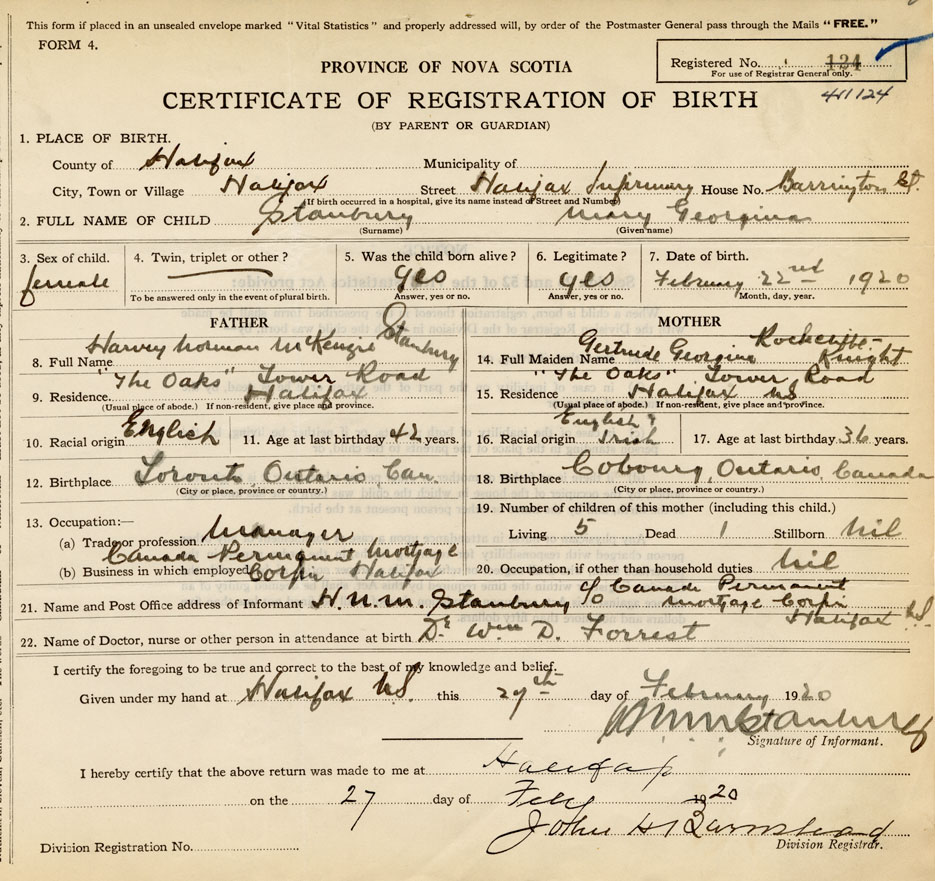 This form if placed in an unsealed envelope marked "Vital Statistics" and properly addressed will, by order of the Postmaster General pass through the Mails "FREE."
FORM 4.
Registered No. 124
For use of Registrar General only.
PROVINCE OF NOVA SCOTIA
411124
CERTIFICATE OF REGISTRATION OF BIRTH
(BY PARENT OR GUARDIAN)
1. PLACE OF BIRTH.
County of Halifax Municipality of
City, Town or Village Halifax Street Halifax Infirmary House No. Barrington St.
(If birth occurred in a hospital, give its name instead of Street and Number)
2. FULL NAME OF CHILD Stanbury Mary Georgina
(Surname) (Given name)
3. Sex of child. 4. Twin, triplet or other? 5. Was the child born alive? 6. Legitimate? 7. Date of birth.
female yes yes February 22nd 1920
To be answered only in the event of plural birth. Answer, yes or no. Answer, yes or no. Month, day, year.
FATHER MOTHER
8. Full Name Harvey Norman McKenzie Stanbury
14. Full Maiden Name Gertrude Georgina Knight
9. Residence "The Oaks" Tower Road Halifax
(Usual place of abode.) If non-resident, give place and province.
15. Residence "The Oaks" Tower Road Halifax NS
(Usual place of abode.) If non-resident, give place and province.
10. Racial origin English 11. Age at last birthday 42 years.
16. Racial origin English & Irish 17. Age at last birthday 36 years.
12. Birthplace Toronto Ontario Can.
(City or place, province or country.)
18. Birthplace Cobourg, Ontario, Canada
(City or place, province or country.)
13. Occupation:—
(a) Trade or profession Manager
(b) Business in which employed Canada Permanent Mortgage Corp'n Halifax
19. Number of children of this mother (including this child.)
Living 5 Dead 1 Stillborn Nil
20. Occupation, if other than household duties Nil
21. Name and Post Office address of Informant H. N. M. Stanbury c/o Canada Permanent Mortgage Corp'n Halifax NS.
22. Name of Doctor, nurse or other person in attendance at birth Dr Wm D. Forrest
I certify the foregoing to be true and correct to the best of my knowledge and belief.
Given under my hand at Halifax NS this 27th day of February 1920
HNM Stanbury
Signature of Informant.
I hereby certify that the above return was made to me at Halifax
on the 27 day of Feby 1920
John H Barnstead
Division Registration No. Division Registrar.